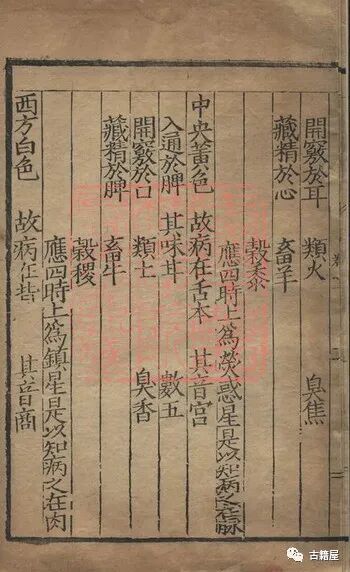 開竅於耳 類火 臭焦
藏精於心 畜羊
穀黍
應四時上為熒惑星是以知病之在脉
中央黃色 故病在舌本 其音宮
入通於脾 其味甘 數五
開竅於口 類土 臭香
藏精於脾 畜牛
穀稷
應四時上為鎮星是以知病之在肉
西方白色 故病在背 其音商
二
古籍屋